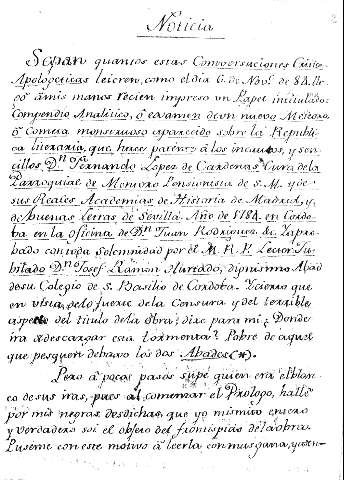 Noticia
Sepan quantos estas Conversaciones Critico
Apologeticas leieren, como el dia 6. de Nov.e de 84. lle
gó á mis manos recien impreso un Papel intitulado:
Compendio Analitico, ó examen de un nuevo Meteoro,
ó Cometa monstruoso aparecido sobre la Republi
ca literaria, que hacen patente à los incautos, y sen
cillos D.n Fernando Lopez de Cardenas, Cura de la
Parroquial de Montoro Pensionista de S. M. y de
sus Reales Academias de Historia de Madrid, y
de buenas letras de Sevilla. Año de 1784. en Cordo
ba en la oficina de D.n Juan Rodriguez &. Y apro
bado con toda solemnidad por el M. R. P. Lector Ju
bilado D.n Josef Ramon Hurtado, dignisimo Abad
de su Colegio de S. Basilio de Cordoba. Y cierto que
en vista de lo fuerte de la Censura y del terrible
aspecto del titulo de la obra: dixe para mi: Donde
ira á descargar esta tormenta? Pobre de aquel
que pesquen debaxo los dos Abades (*).
Pero á pocos pasos supe quien era el blan
co de sus iras, pues al comenzar el Prologo, hallé
por mis negras desdichas, que yo mismito entero
y verdadero soi el objeto del frontispicio de la obra.
Puseme con este motivo á leerla con mas gana, y aten-